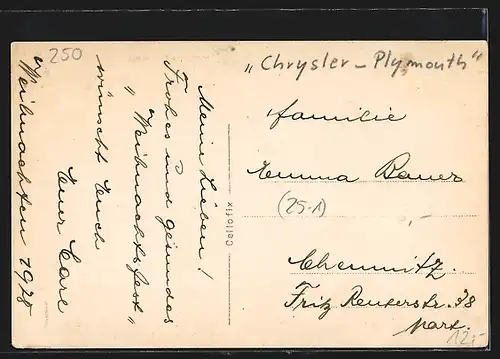 250
Meine Lieben!
Frohes und gesundes
"Weihnachtsfest"
wünscht Euch
Euer Carl
Weihnachten 1928
Cellofix
"Chrysler - Plymouth"
Familie
Emma Bauer
(25-1)
Chemnitz.
Fritz Reuterstr. 38
part.
12,-